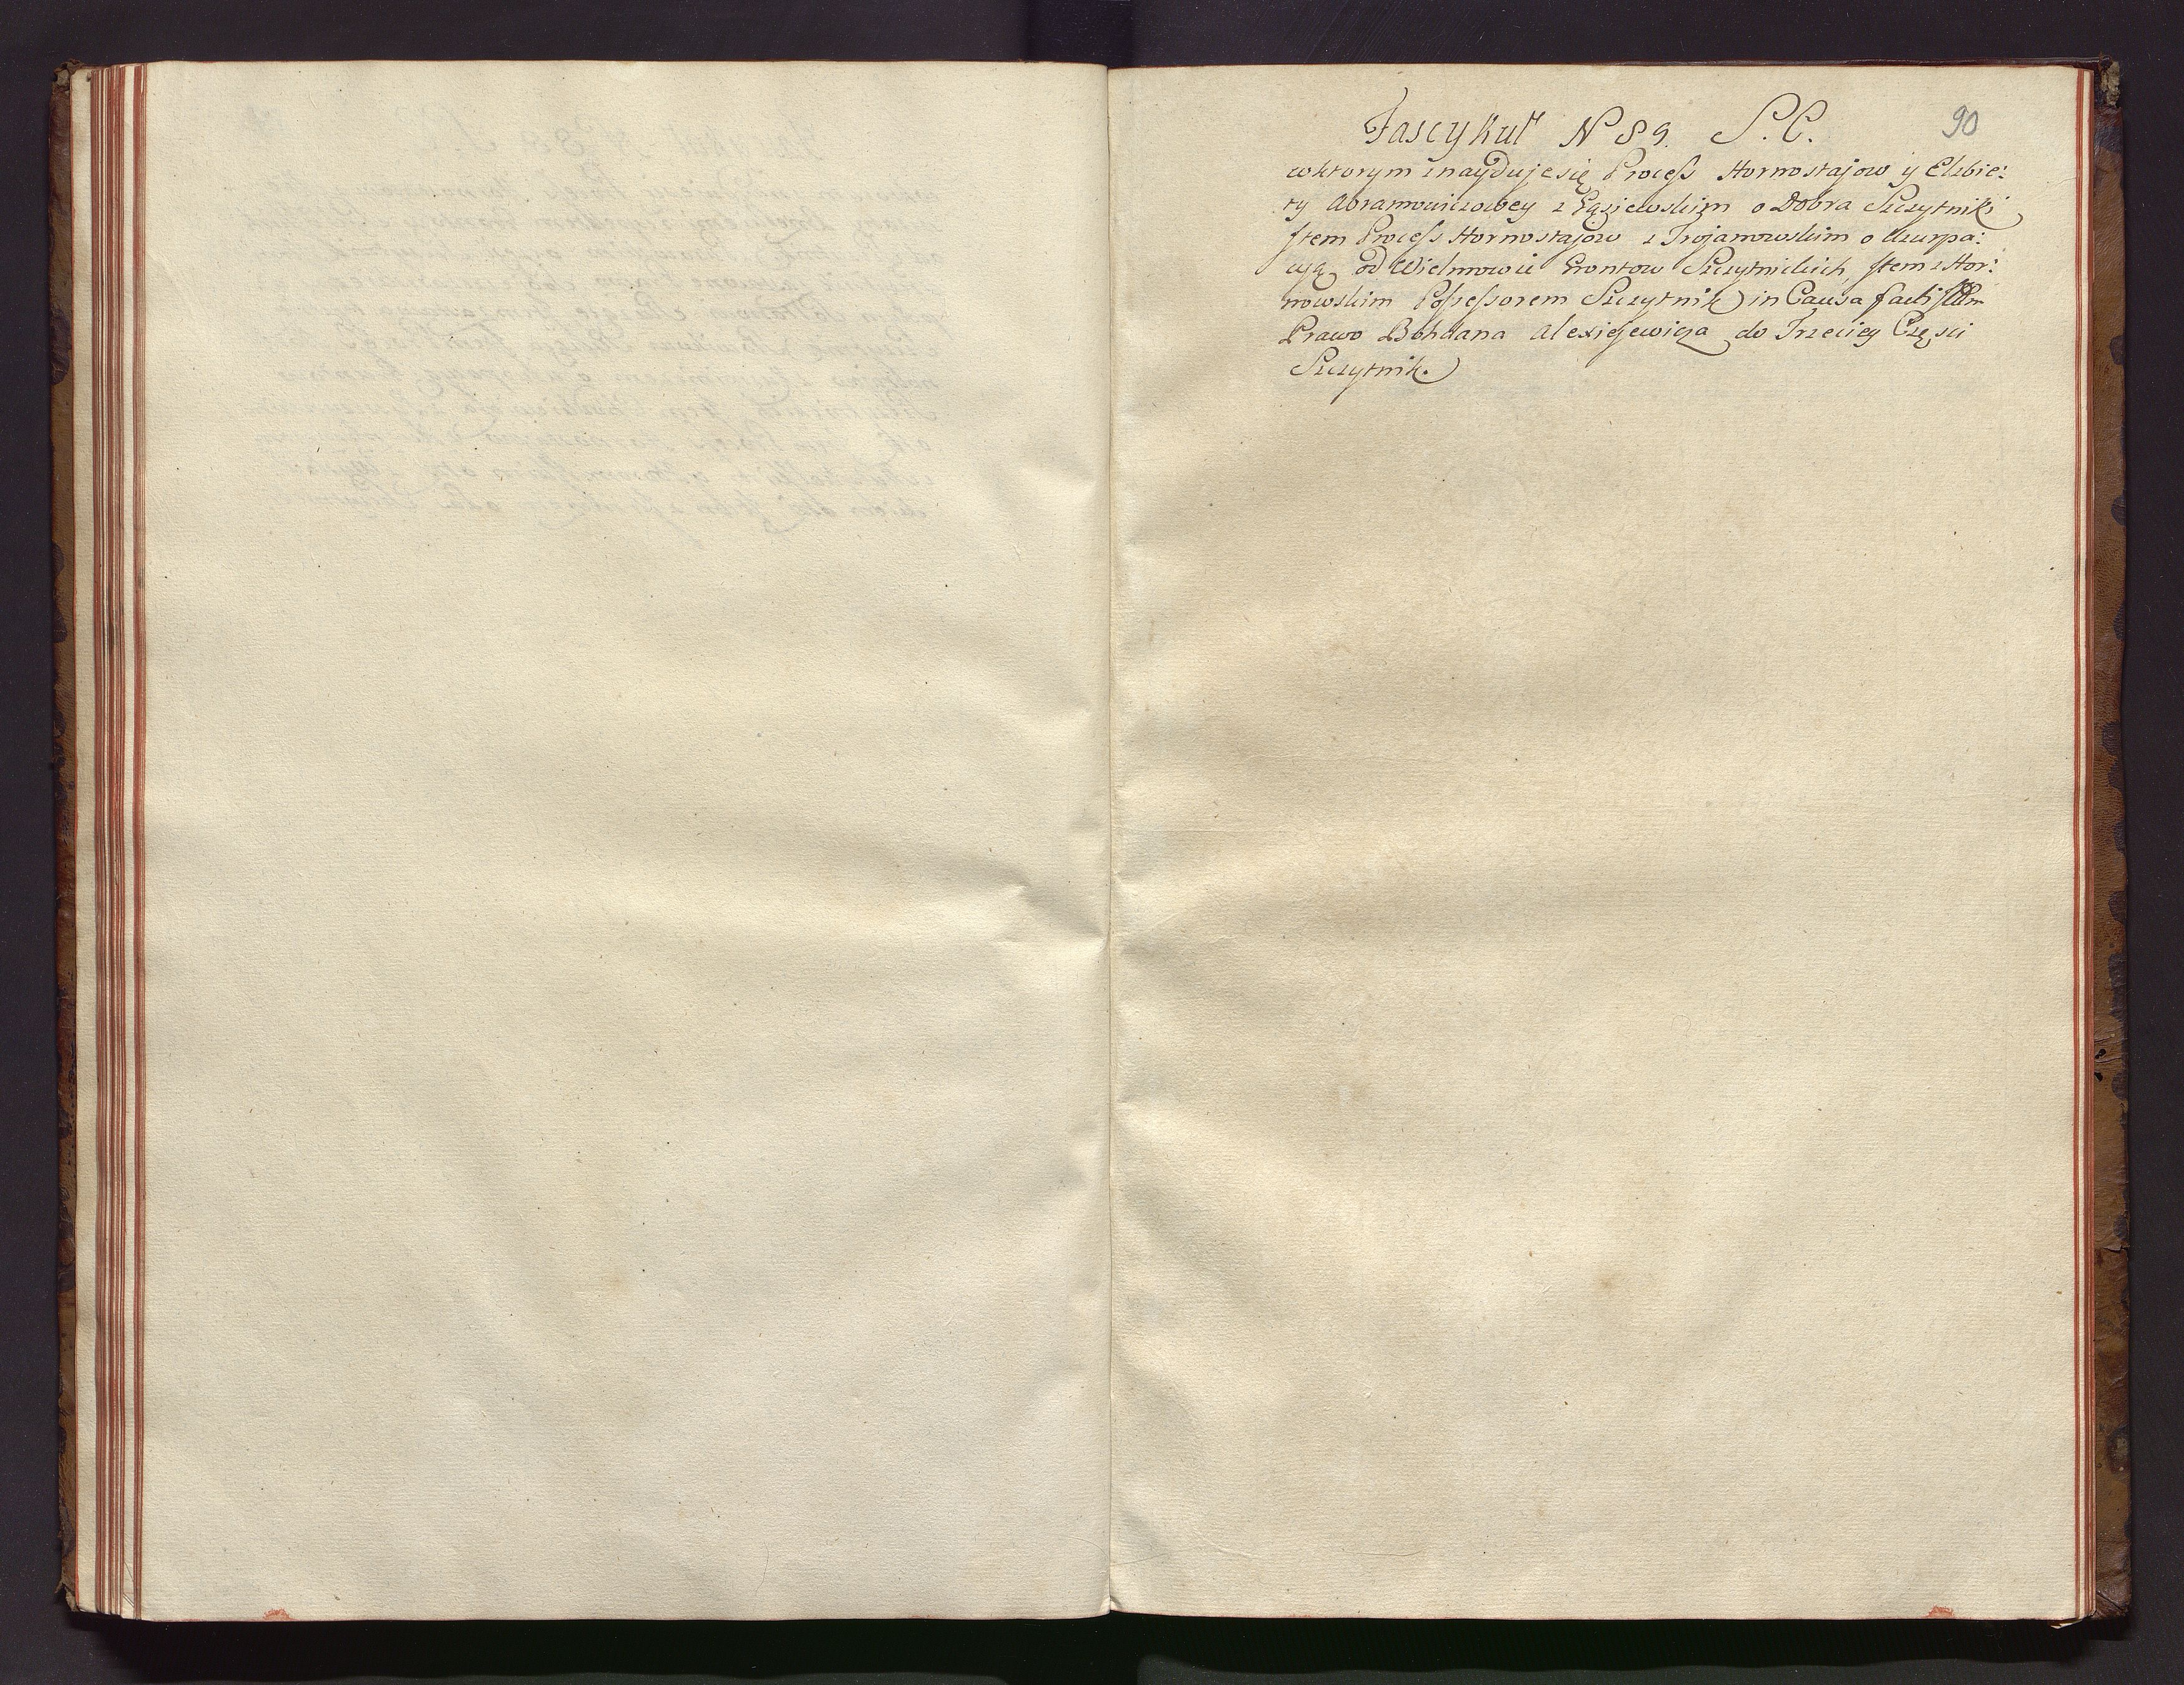 Fascykuł N 89. S. C. 90
wktorym znayduje się Process Hornostajow y Elzbie:
ty Abramowiczowey z Gąsiewskim o Dobra Szczytniki
Item Process Hornostajow z Trojanowskim o Uzurpa:
cyą od Wielmowic Grontow Szczytnickich, Item z Hor:
nowskim Possessorem Szczytnik in Causa facti Item
Prawo Bohdana Alexiejewicza do Trzeciey Częsci
Szczytnik.